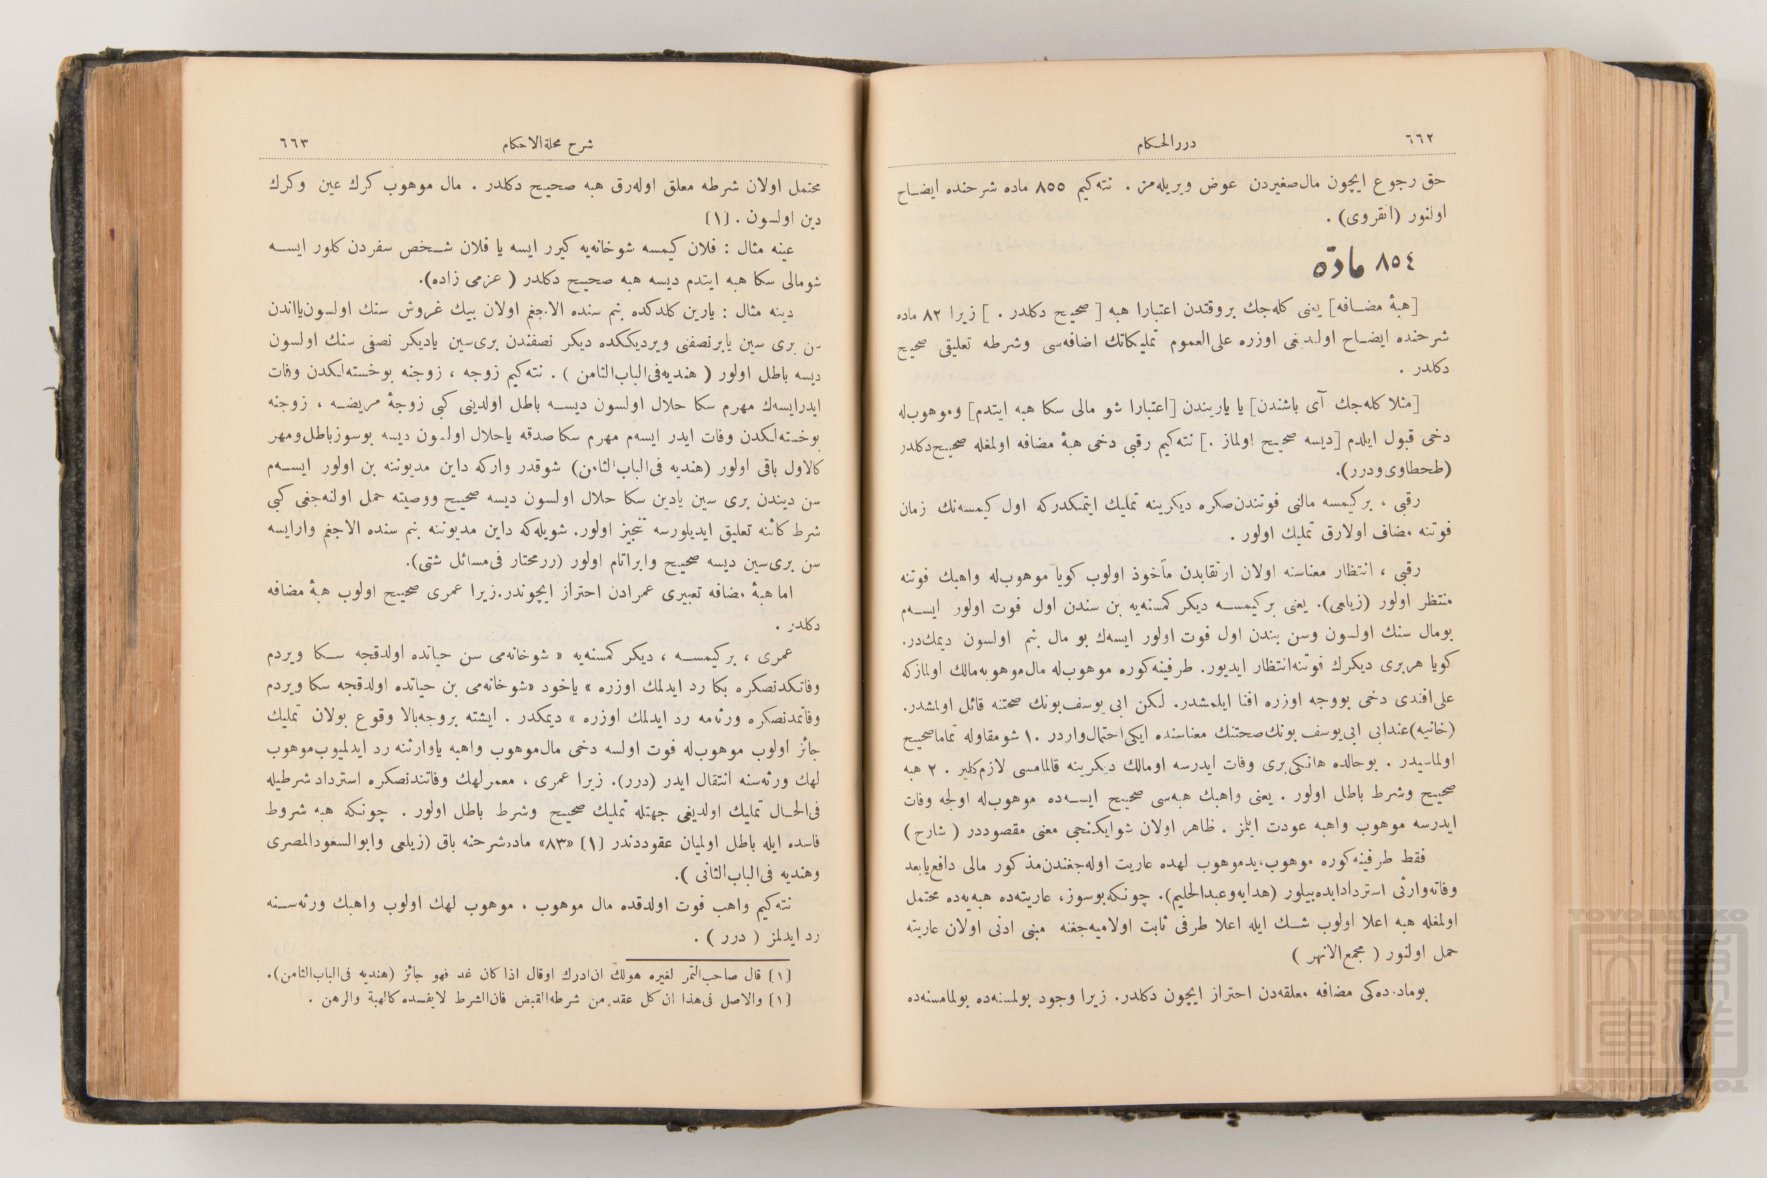 ٦٦٢
دررالحكام
حق رجوع ايچون مال صغيردن عوض ويريله‌مز . نته‌كيم ٨٥٥ ماده شرحنده ايضاح
اولنور (انقروى) .
٨٥٤ مادّه
[هبهٔ مضافه] يعنى كله‌جك بروقتدن اعتبارا هبه [ صحيح دكلدر . ] زيرا ٨٢ ماده
شرحنده ايضاح اولنديغى اوزره على‌العموم تمليكاتك اضافه‌سى وشرطه تعليقى صحيح
دكلدر .
[مثلا كله‌جك آى باشندن] يا يارندن [اعتبارا شو مالى سكا هبه ايتدم] وموهوب‌له
دخى قبول ايلدم [ديسه صحيح اولماز .] نته‌كيم رقبى دخى هبهٔ مضافه اولمغله صحيح‌دكلدر
(طحطاوى‌ودرر).
رقبى ، بركيمسه مالنى فوتندن‌صكره ديكرينه تمليك ايتمكدركه اول كيمسه‌نك زمان
فوتنه مضاف اولارق تمليك اولور .
رقبى ، انتظار معناسنه اولان ارتقابدن مأخوذ اولوب كويا موهوب‌له واهبك فوتنه
منتظر اولور (زيلعى). يعنى بركيمسه ديكر كمسنه‌يه بن سندن اول فوت اولور ايسه‌م
بومال سنك اولسون وسن بندن اول فوت اولور ايسه‌ك بو مال بنم اولسون ديمك‌در.
كويا هربرى ديكرك فوتنه‌انتظار ايديور. طرفينه‌كوره موهوب‌له مال‌موهوبه‌مالك اولمازكه
على‌افندى دخى بووجه اوزره افتا ايلمشدر. لكن ابى يوسف‌بونك صحتنه قائل اولمشدر.
(خانيه)عندابى ابى‌يوسف بونك‌صحتنك معناسنده ايكى‌احتمال‌واردر ١٠ شومقاوله تماماصحيح
اولماسيدر . بوحالده هانكى‌برى وفات ايدرسه اومالك ديكرينه قالمامسى لازم‌كلير . ٢ هبه
صحيح وشرط باطل اولور . يعنى واهبك هبه‌سى صحيح ايسه‌ده موهوب‌له اولجه وفات
ايدرسه موهوب واهبه عودت ايلمز . ظاهر اولان شوايكنجى معنى مقصوددر ( شارح )
فقط طرفينه‌كوره موهوب،يدموهوب لهده عاريت اوله‌جغندن‌مذكور مالى دافع‌يابعد
وفاته‌وارثى استرداد‌ايده‌بيلور (هدايه‌وعبدالحليم). چونكه‌بوسوز، عاريته‌ده هبه‌يه‌ده محتمل
اولمغله هبه اعلا اولوب شك ايله اعلا طرفى ثابت اولاميه‌جغنه مبنى ادنى اولان عاريته
حمل اولنور ( مجمع‌الانهر )
بوماده‌ده‌كى مضافه معلقه‌دن احتراز ايچون دكلدر. زيرا وجود بولمسنه‌ده بولمامسنه‌ده
شرح مجلةالاحكام
٦٦٣
محتمل اولان شرطه معلق اوله‌رق هبه صحيح دكلدر . مال موهوب كرك عين وكرك
دين اولسون . [١]
عينه مثال : فلان كيمسه شوخانه‌يه كيرر ايسه يا فلان شخص سفردن كلور ايسه
شومالى سكا هبه ايتدم ديسه هبه صحيح دكلدر ( عزمى زاده).
دينه مثال : يارين كلدكده بنم سنده الاجغم اولان بيك غروش سنك اولسون‌يااندن
سن برى سين يابرنصفى ويرديككده ديكر نصفندن برى‌سين ياديكر نصفى سنك اولسون
ديسه باطل اولور ( هنديه‌فى‌الباب‌الثامن ) . نته‌كيم زوجه ، زوجنه بوخسته‌لكدن وفات
ايدرايسه‌ك مهرم سكا حلال اولسون ديسه باطل اولدينى كبى زوجهٔ مريضه ، زوجنه
بوخسته‌لكدن وفات ايدر ايسه‌م مهرم سكاصدقه ياحلال اولسون ديسه بوسوزباطل‌ومهر
كالاول باقى اولور (هنديه فى‌الباب‌الثامن) شوقدر واركه داين مديوننه بن اولور ايسه‌م
سن ديندن برى سين يادين سكا حلال اولسون ديسه صحيح ووصيته حمل اولنه‌جغى كبى
شرط كائنه تعليق ايديلورسه تنجيز اولور. شويله‌كه داين مديوننه بنم سنده الاجغم وارايسه
سن برى‌سين ديسه صحيح وابراتام اولور (ررمختار فى‌مسائل شتى).
اما هبهٔ مضافه تعبيرى عمرادن احتراز ايچوندر.زيرا عمرى صحيح اولوب هبهٔ مضافه
دكلدر .
عمرى ، بركيمسه ، ديكر كمسنه‌يه « شوخانه‌مى سن حياتده اولدقجه سكا ويردم
وفاتكدنصكره بكا رد ايدلمك اوزره » ياخود «شوخانه‌مى بن حياتده اولدقجه سكا ويردم
وفاتمدنصكره ورثه‌مه رد ايدلمك اوزره » ديمكدر . ايشته بروجه‌بالا وقوع بولان تمليك
جائز اولوب موهوب‌له فوت اولسه دخى مال‌موهوب واهبه ياوارثنه رد ايدلميوب‌موهوب
لهك ورثه‌سنه انتقال ايدر (درر). زيرا عمرى ، معمرلهك وفاتندنصكره استرداد شرطيله
فى‌الحال تمليك اولديغى جهتله تمليك صحيح وشرط باطل اولور . چونكه هبه شروط
فاسده ايله باطل اولميان عقوددندر [١] «٨٣» ماده‌شرحنه باق (زيلعى وابوالسعودالمصرى
وهنديه فى‌الباب‌الثانى ).
نته‌كيم واهب فوت اولدقده مال موهوب ، موهوب لهك اولوب واهبك ورثه‌سنه
رد ايدلمز ( درر ) .
[١] قال صاحب‌التمر لغيره هولك ان‌ادرك اوقال اذا كان غد فهو جائز (هنديه فى‌الباب‌الثامن).
[١] والاصل فى‌هذا ان كل عقد من شرطه‌القبض فان‌الشرط لايفسده كالهبة والرهن .
TOYO BUNKO
東洋文庫